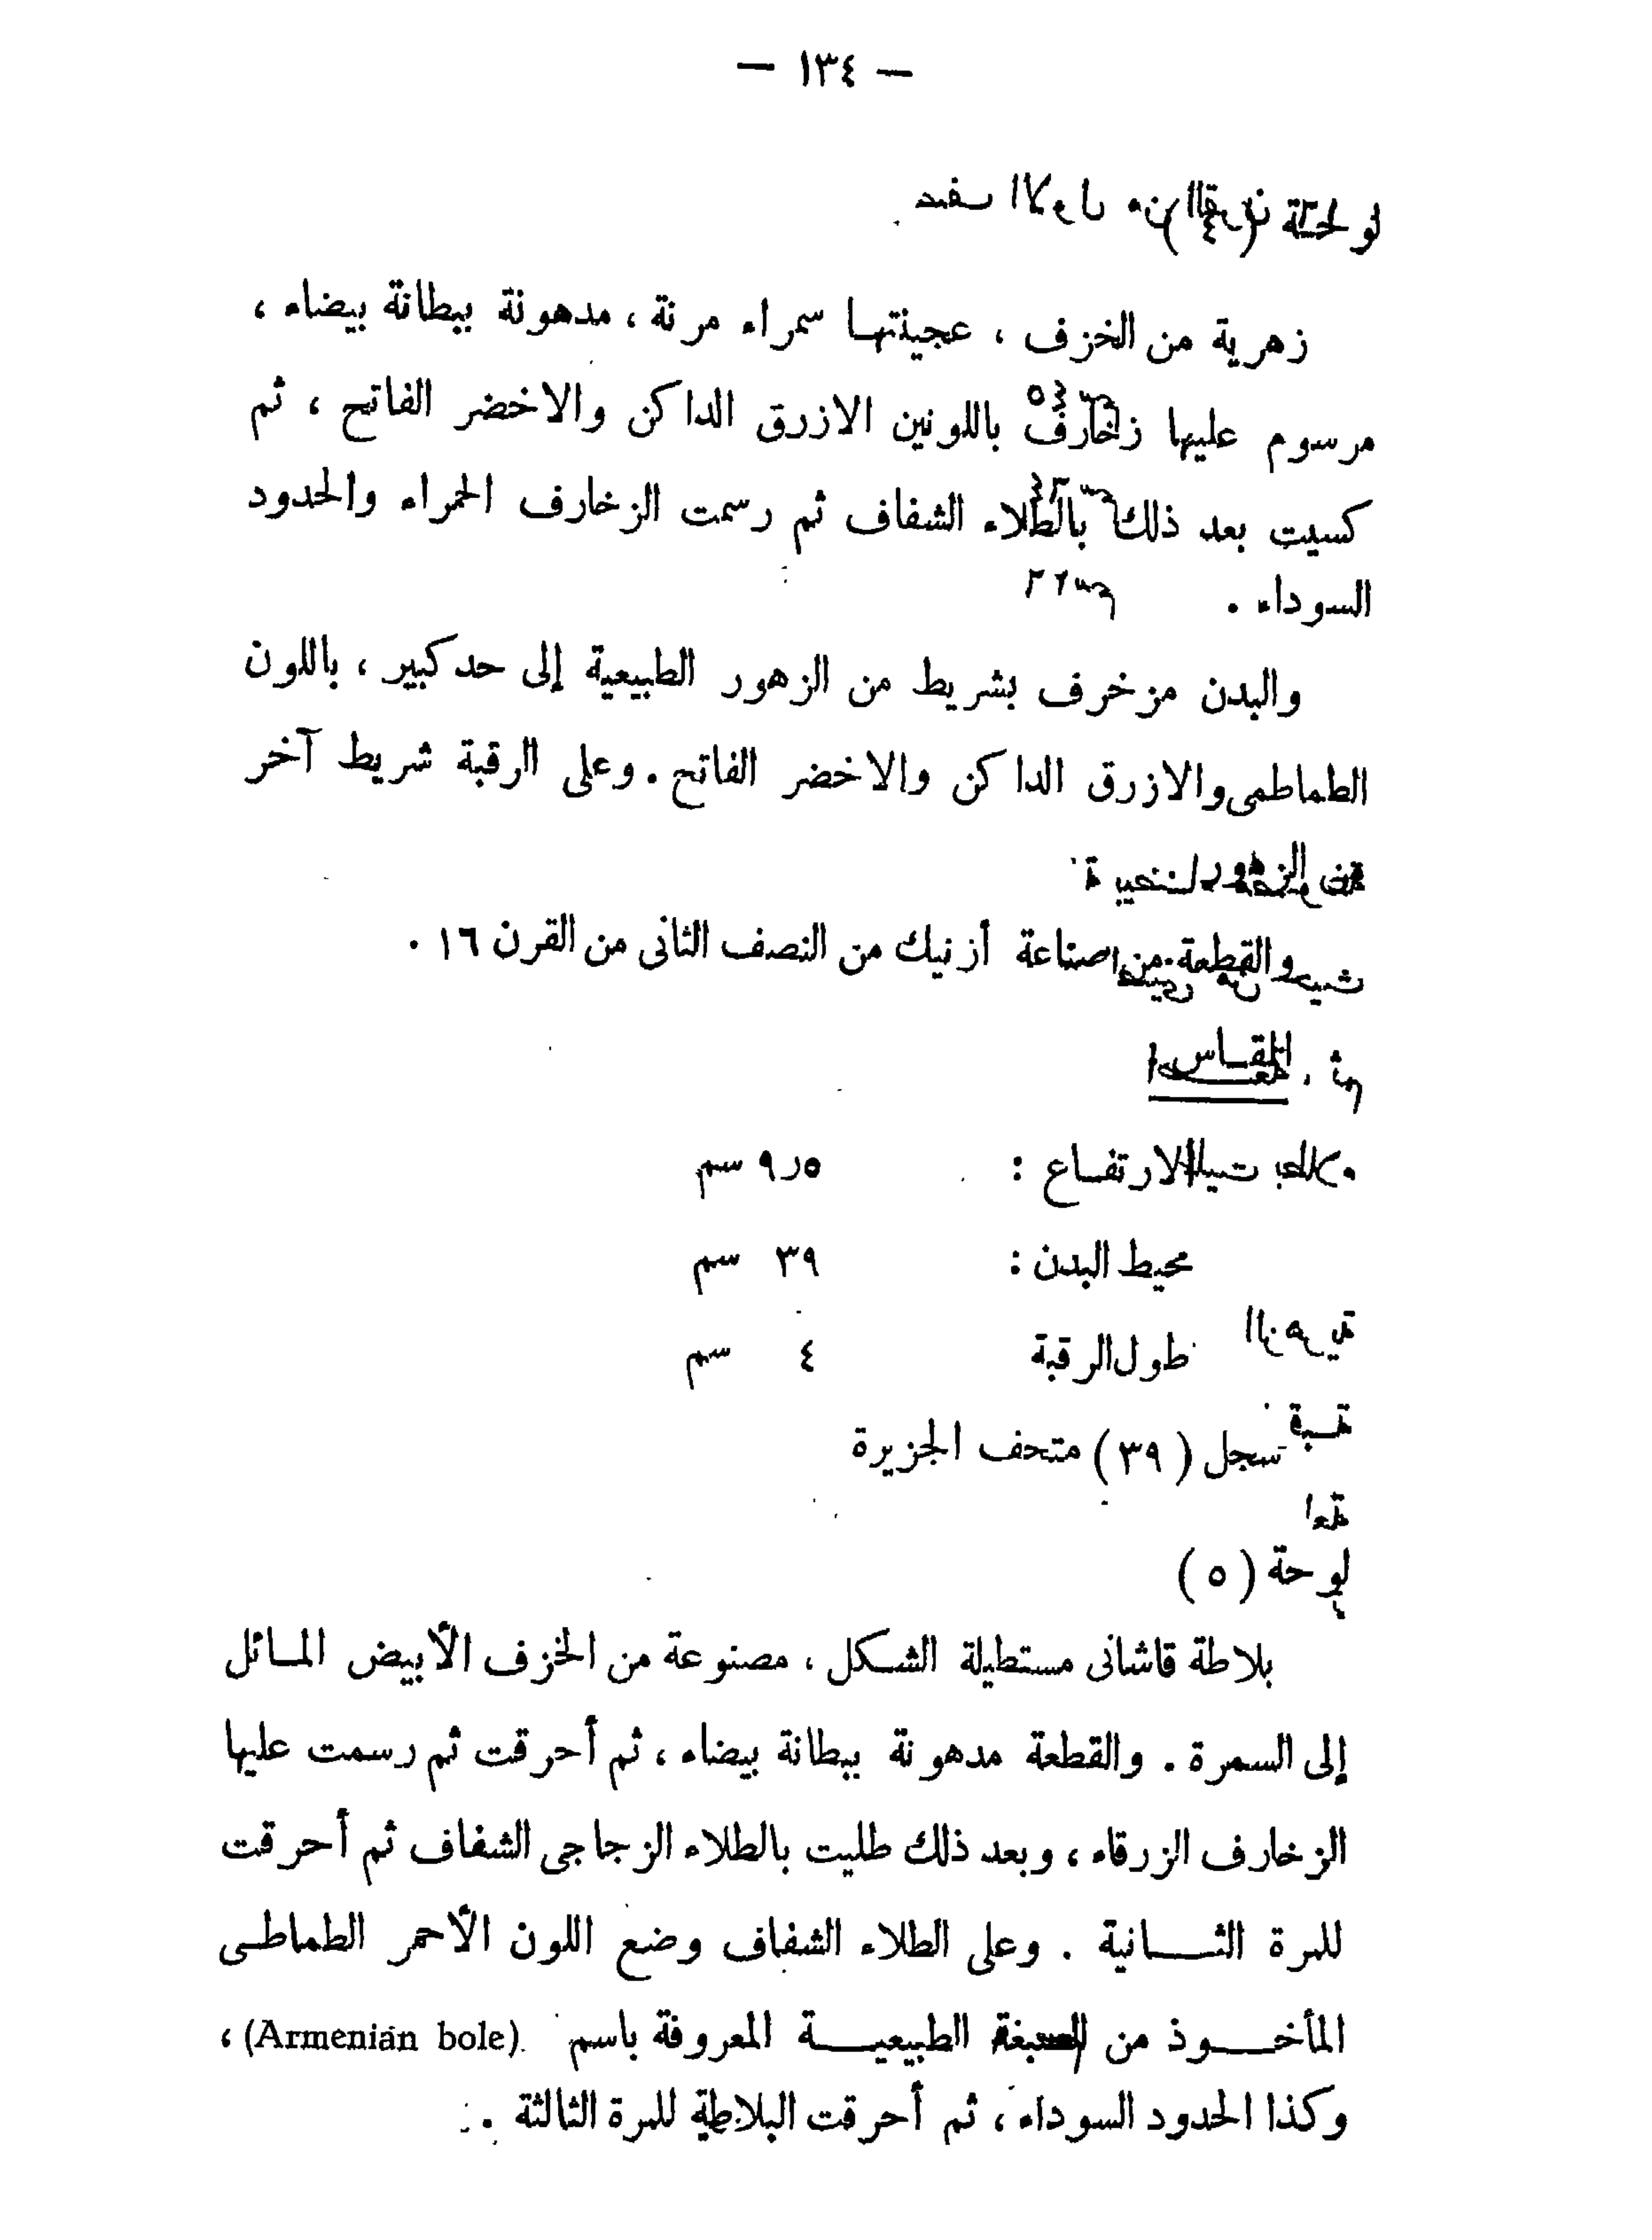 — ١٣٤ —
لوحة (٤)
زهرية من الخزف ، عجينتها سمراء مرنة ، مدهونة ببطانة بيضاء ،
مرسوم عليها زخارف باللونين الازرق الداكن والاخضر الفاتح ، ثم
كسيت بعد ذلك بالطلاء الشفاف ثم رسمت الزخارف الحمراء والحدود
السوداء .
والبدن مزخرف بشريط من الزهور الطبيعية إلى حد كبير ، باللون
الطماطمى والازرق الداكن والاخضر الفاتح . وعلى الرقبة شريط آخر
من الزهور
والقطعة من صناعة أزنيك من النصف الثانى من القرن ١٦ .
المقاس
الارتفاع : ٩٫٥ سم
محيط البدن : ٣٩ سم
طول الرقبة ٤ سم
سجل (٣٩) متحف الجزيرة
لوحة (٥)
بلاطة قاشانى مستطيلة الشكل ، مصنوعة من الخزف الأبيض المائل
إلى السمرة . والقطعة مدهونة ببطانة بيضاء ، ثم أحرقت ثم رسمت عليها
الزخارف الزرقاء ، وبعد ذلك طليت بالطلاء الزجاجى الشفاف ثم أحرقت
للمرة الثانية . وعلى الطلاء الشفاف وضع اللون الأحمر الطماطى
المأخوذ من الصبغة الطبيعية المعروفة باسم (Armenian bole) ،
وكذا الحدود السوداء ، ثم أحرقت البلاطة للمرة الثالثة .